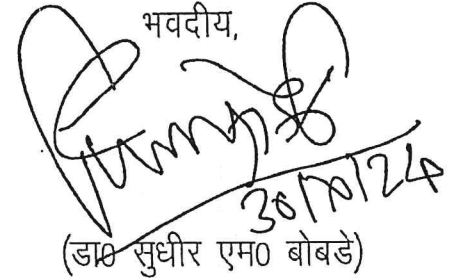 भवदीय,
30/10/24
(डा0 सुधीर एम0 बोबडे)